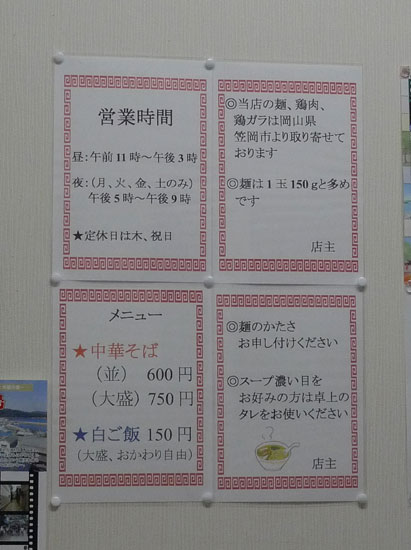 営業時間
昼：午前11時～午後3時
夜：（月、火、金、土のみ）
午後5時～午後9時
★定休日は木、祝日
◎当店の麺、鶏肉、
鶏ガラは岡山県
笠岡市より取り寄せて
おります
◎麺は1玉150gと多め
です
店主
メニュー
★中華そば
（並） 600円
（大盛） 750円
★白ご飯 150円
（大盛、おかわり自由）
◎麺のかたさ
お申し付けください
◎スープ濃い目を
お好みの方は卓上の
タレをお使いください
店主